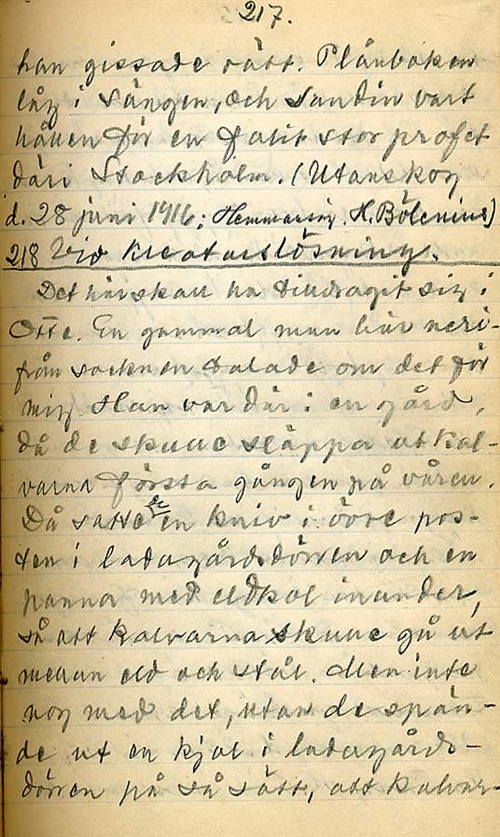 217.
han gissade rätt. Plånboken
låg i sängen, och Sundin vart
hållen för en falit stor profet
däri Stockholm. (Utanskog
d. 28 juni 1916; Hemmansäg. H. Bölenius)
218 Vid kreaturslösning.
Det här skall ha tilldragit sig i
Otte. En gammal man här neri-
från socknen talade om det för
mig. Han var där i en gård,
då de skulle släppa ut kal-
varna första gången på våren.
Då satte de en kniv i övre pos-
ten i ladugårdsdörren och en
panna med eldkol inunder,
så att kalvarna skulle gå ut
mellan eld och stål. Men inte
nog med det, utan de spän-
de ut en kjol i ladugårds-
dörren på så sätt, att kalvar-